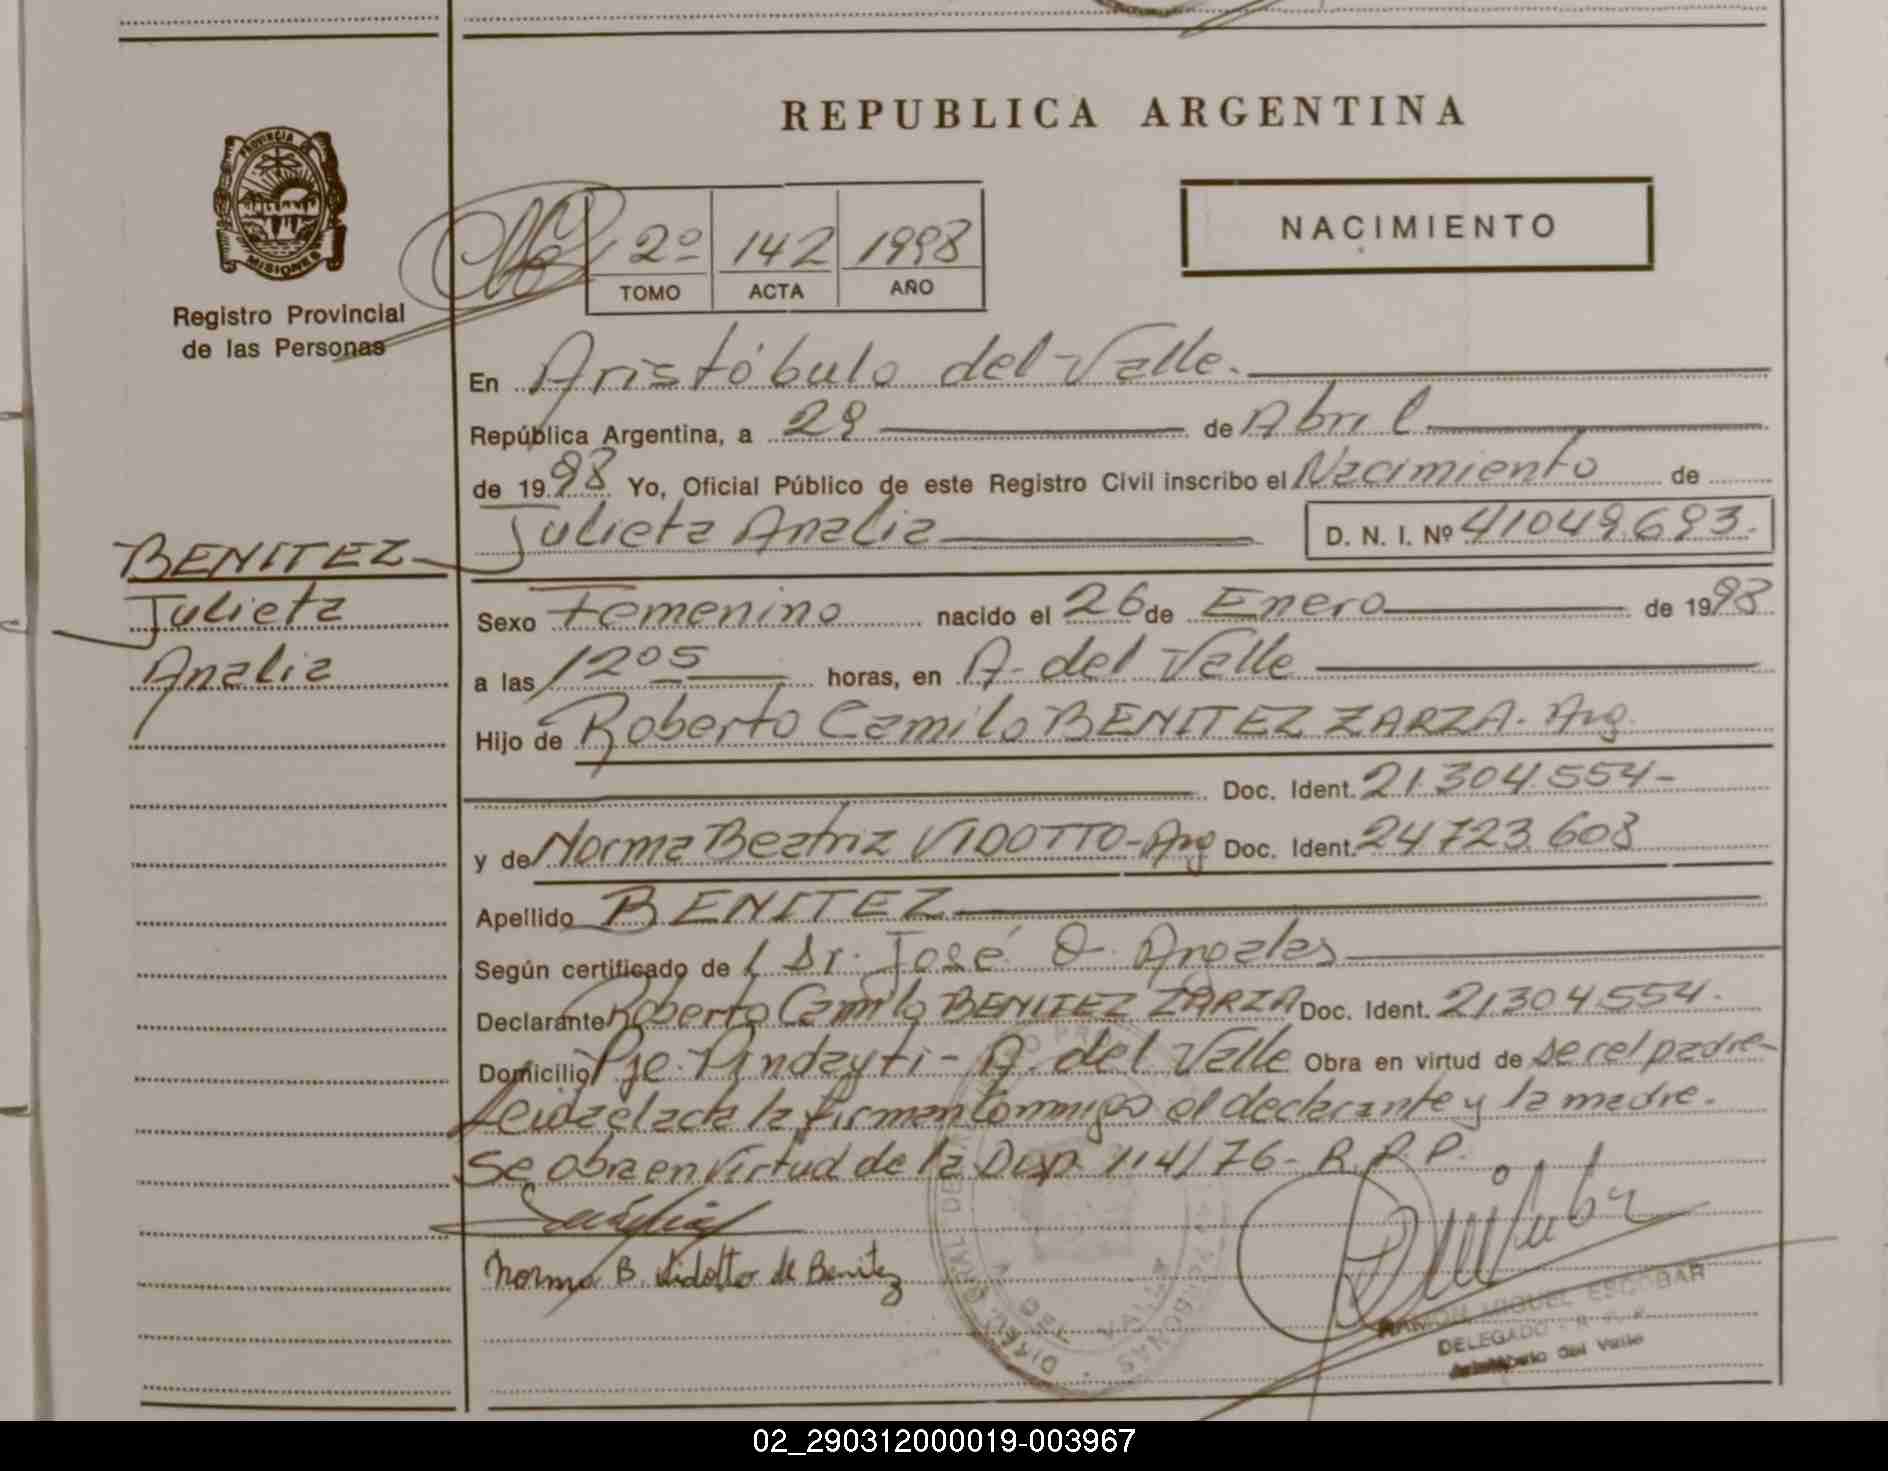 REPUBLICA ARGENTINA
PROVINCIA DE
MISIONES
Registro Provincial
de las Personas
NACIMIENTO
2º 142 1998
TOMO ACTA AÑO
En Aristóbulo del Valle.
República Argentina, a 29 de Abril
de 1998 Yo, Oficial Público de este Registro Civil inscribo el Nacimiento de
Julieta Analia D. N. I. Nº 41049.693.
BENITEZ
Julieta
Analia
Sexo Femenino nacido el 26 de Enero de 1998
a las 12 05 horas, en A. del Valle
Hijo de Roberto Camilo BENITEZ ZARZA. Arg.
Doc. Ident. 21.304.554-
y de Norma Beatriz VIDOTTO-Arg Doc. Ident. 24723.608
Apellido BENITEZ
Según certificado de Dr. José O.
Declarante Roberto Camilo BENITEZ ZARZA Doc. Ident. 21304.554.
Domicilio Pje. Pindayti - A. del Valle Obra en virtud de ser el padre
Leida el acta la firman conmigo el declarante y la madre.
Se obra en virtud de la Disp. 114/76- R.P.P.
Norma B. Vidotto de Benitez
DEL VALLE
RAMON MIGUEL ESCOBAR
DELEGADO R. P. P.
Aristobulo del Valle
02_290312000019-003967